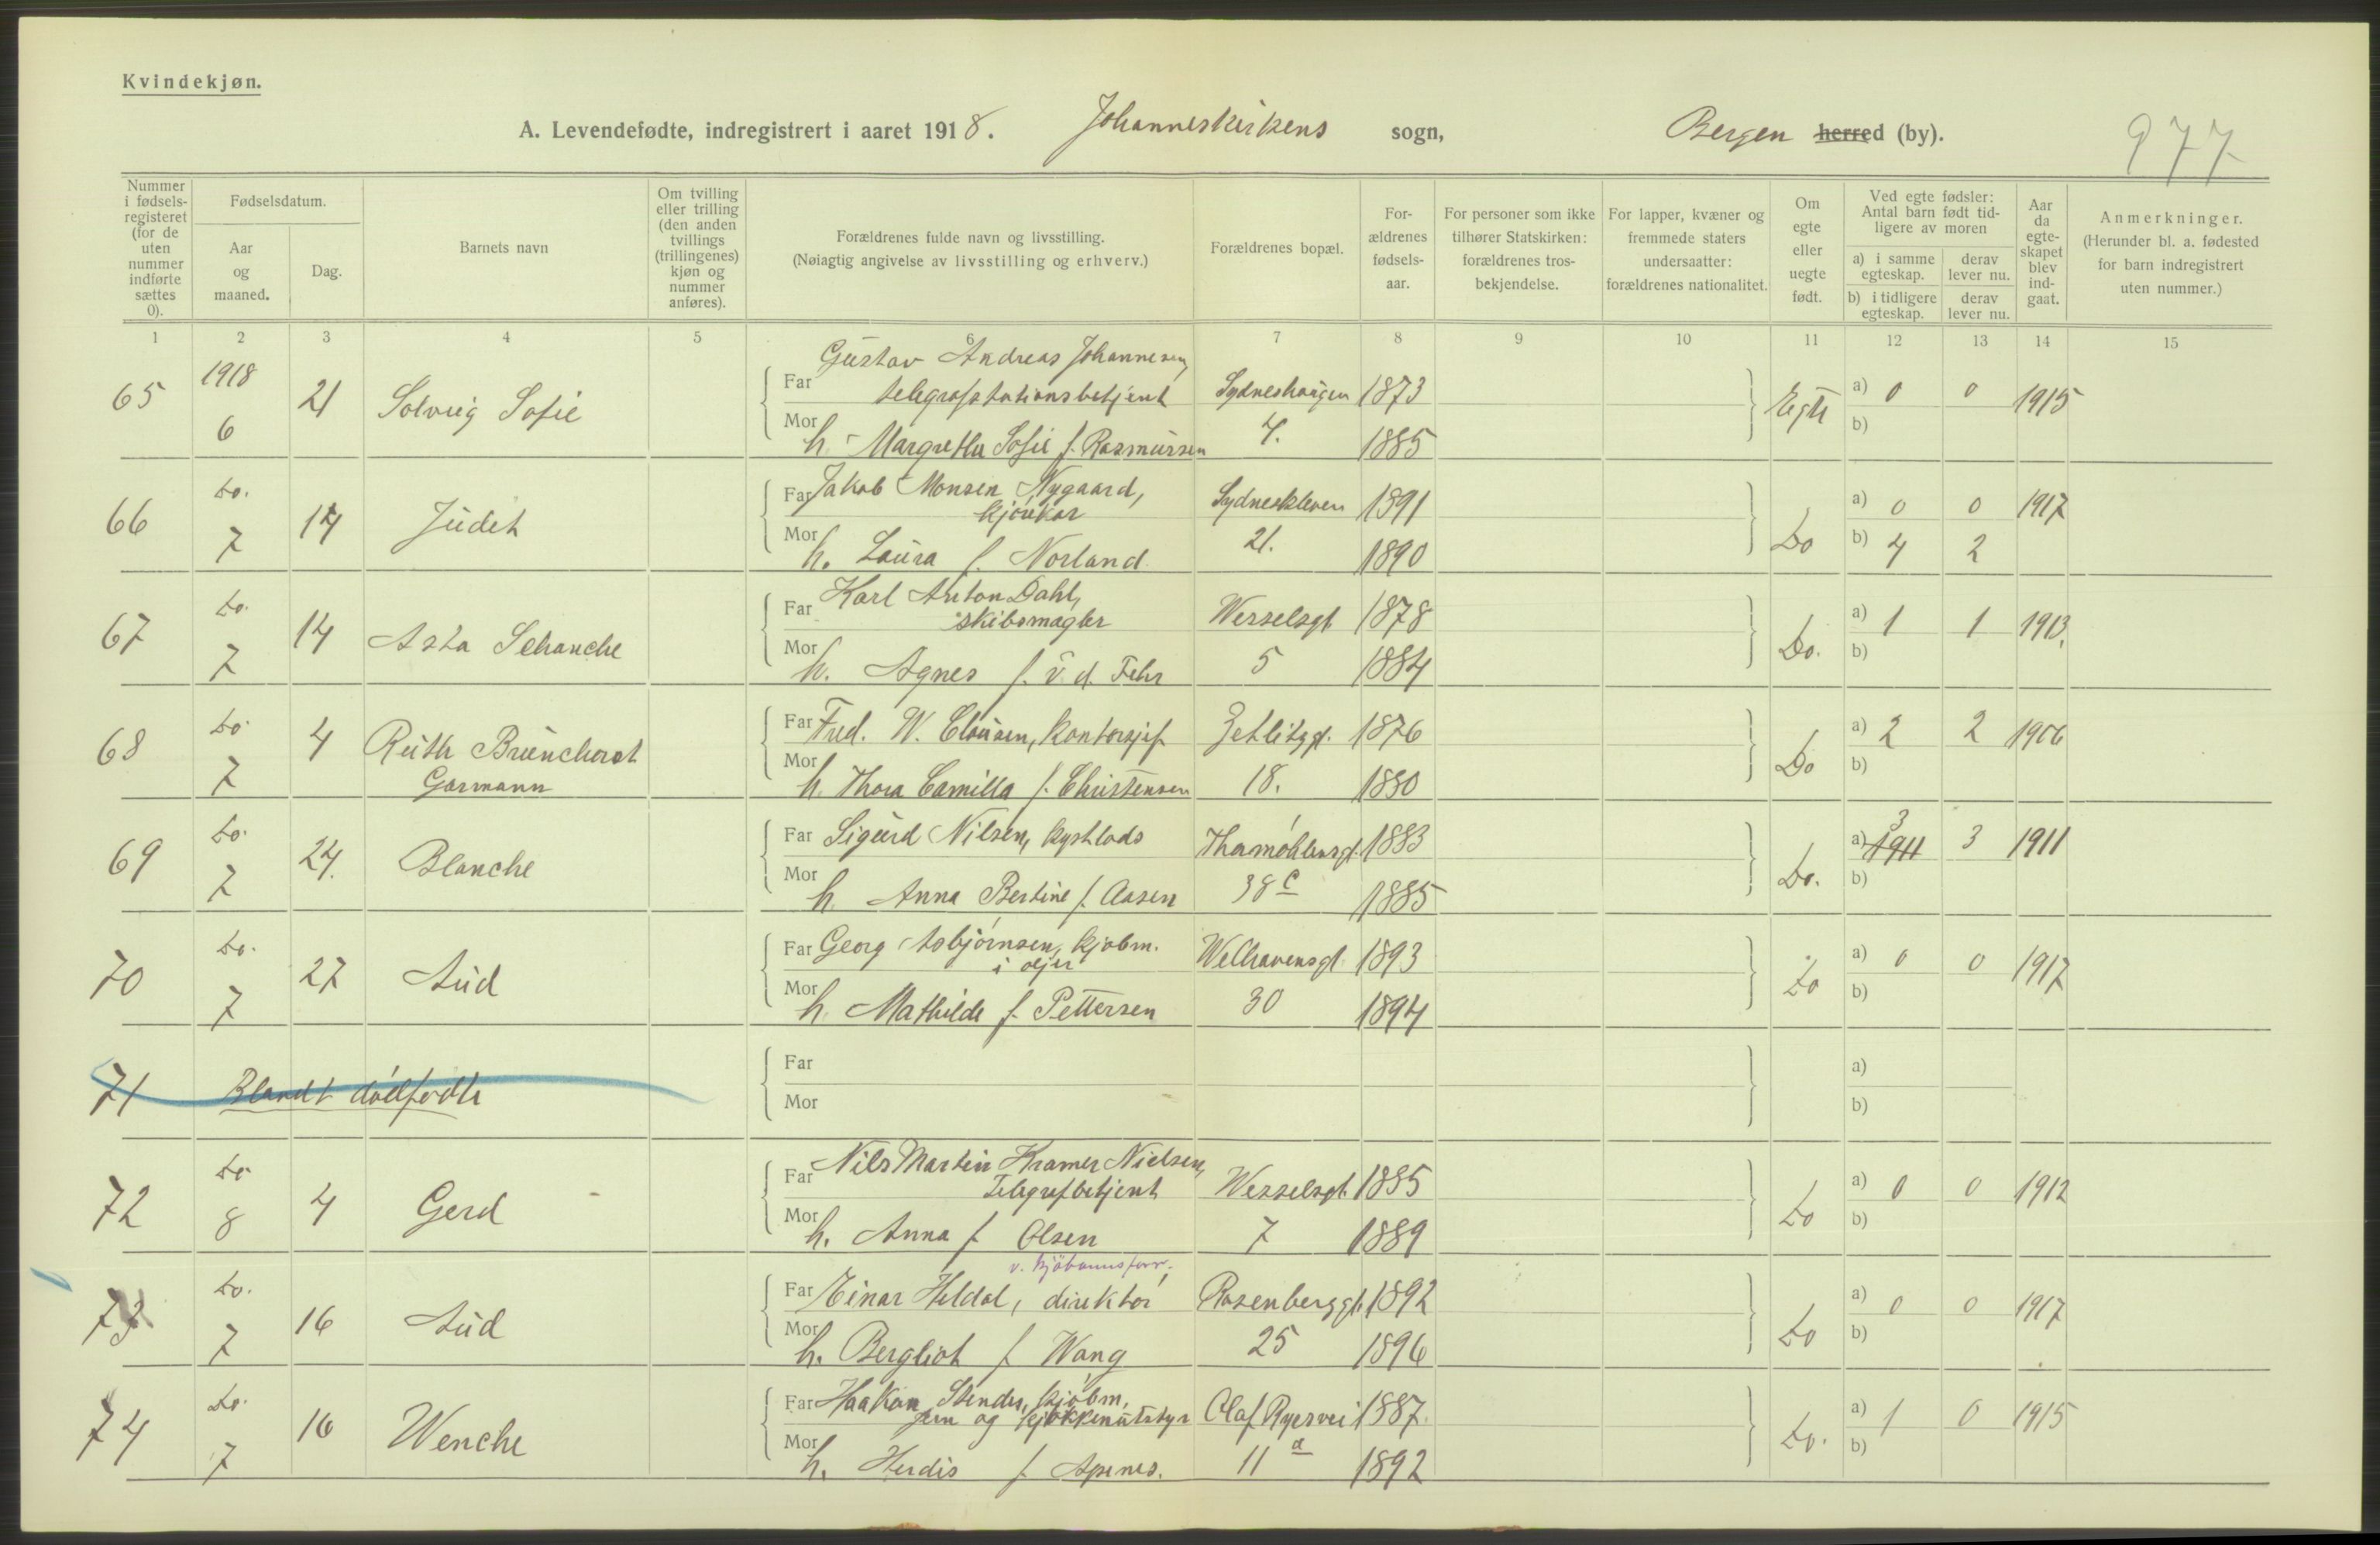 Kvindekjøn.
A. Levendefødte, indregistrert i aaret 1918. Johanneskirkens sogn, Bergen herred (by). 977
Nummer i fødsels-registeret (for de uten nummer indførte sættes 0).
Fødselsdatum.
Aar og maaned.
Dag.
Barnets navn
Om tvilling eller trilling (den anden tvillings (trillingenes) kjøn og nummer anføres).
Forældrenes fulde navn og livsstilling.
(Nøiagtig angivelse av livsstilling og erhverv.)
Forældrenes bopæl.
For-ældrenes fødsels-aar.
For personer som ikke tilhører Statskirken: forældrenes tros-bekjendelse.
For lapper, kvæner og fremmede staters undersaatter: forældrenes nationalitet.
Om egte eller uegte født.
Ved egte fødsler: Antal barn født tid-ligere av moren
a) i samme egteskap. derav lever nu.
b) i tidligere egteskap. derav lever nu.
Aar da egte-skapet blev ind-gaat.
Anmerkninger.
(Herunder bl. a. fødested for barn indregistrert uten nummer.)
1 2 3 4 5 6 7 8 9 10 11 12 13 14 15
65 1918 6 21 Solveig Sofie
Far Gustav Andreas Johannesen, telegrafstationsbetjent Sydneshaugen 1873 Egte a) 0 0 1915
Mor h. Margrethe Sofie f. Rasmussen 7. 1885 b)
66 Do. 7 14 Judet
Far Jakob Monsen Nygaard, Sydneskleven 1891 a) 0 0 1917
Mor h. Laura f. Norland 21. 1890 Do b) 4 2
67 Do. 7 14 Asta Schanche
Far Karl Anton Dahl, skibsmægler Wesselsgt 1878 a) 1 1 1913.
Mor h. Agnes f. v. d. Fehr 5 1884 Do. b)
68 Do 7 4 Ruth Brunchorst Garmann
Far Fred. W. Clausen, Kontorsjef Zetlitzgt. 1876 a) 2 2 1906
Mor h. Thora Camilla f. Christensen 18. 1880 Do b)
69 Do. 7 24. Blanche
Far Sigurd Nilsen, kystlods Thormøhlensgt. 1883 a) 1911 3 3 1911
Mor h. Anna Bertine f. Aasen 38 c 1885 Do. b)
70 Do. 7 27 Aud
Far Georg Asbjørnsen, kjøbm. i oljer Welhavensgt. 1893 a) 0 0 1917
Mor h. Mathilde f. Pettersen 30 1894 Do b)
71 Blandt dødfødte
Far a)
Mor b)
72 Do 8 4 Gerd
Far Nils Martin Kramer Nielsen, Telegrafbetjent Wesselsgt. 1885 a) 0 0 1912
Mor h. Anna f. Olsen 7 1889 Do b)
73 Do. 7 16 Aud
v. kjøbmansforr.
Far Einar Heldal, direktør Rosenberggt. 1892 a) 0 0 1917
Mor h. Bergliot f. Wang 25 1896 Do b)
74 Do. 7 16 Wenche
Far Haakon Stender, kjøbm, jern og kjøkkenutstyr Olaf Ryesvei 1887. a) 1 0 1915
Mor h. Herdis f. Apenes. 11 a 1892 Do. b)